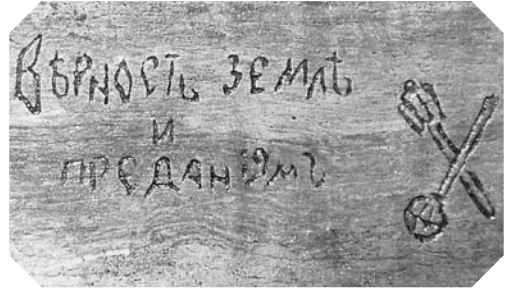 Вѣрность землѣ
и
преданіямъ